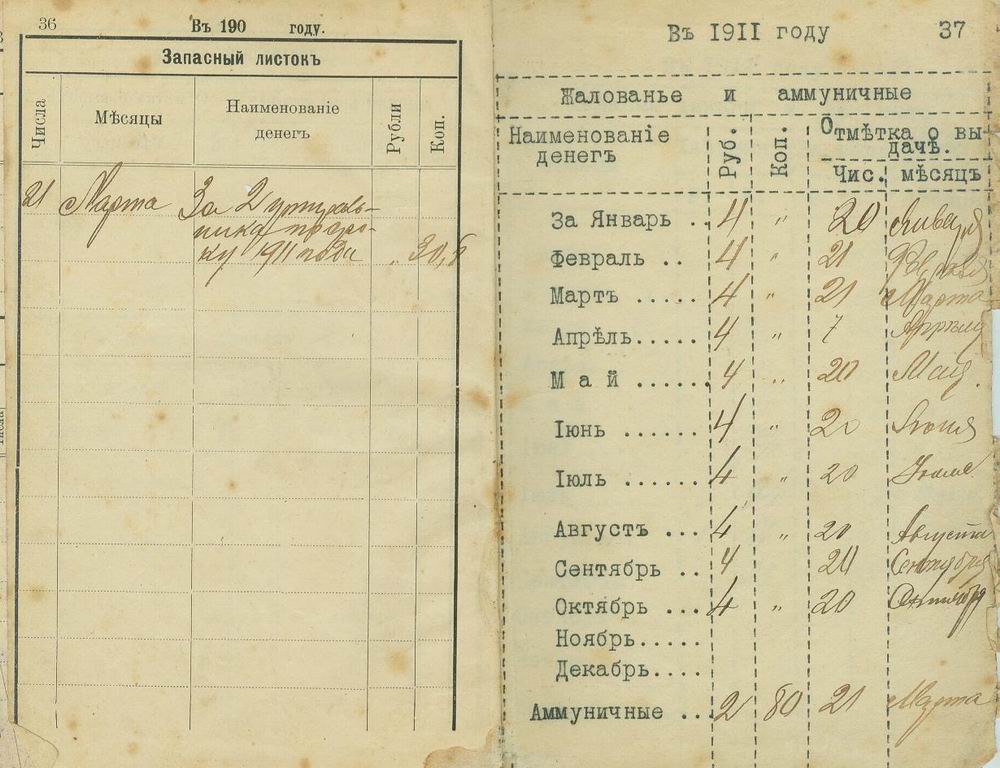 36
Въ 190 году.
Запасный листокъ
Числа Мѣсяцы Наименованіе денегъ Рубли Коп.
21 Марта За 2
1911 года „ 30,8
Въ 1911 году 37
Жалованье и аммуничные
Наименованіе денегъ Руб. Коп. Отмѣтка о выдачѣ.
Чис. мѣсяцъ
За Январь .. 4 „ 20 Января
Февраль .. 4 „ 21 Февраля
Мартъ ..... 4 „ 21 Марта
Апрѣль..... 4 „ 7 Апрѣля
Май ...... 4 „ 20 Мая.
Іюнь ...... 4 „ 20 Іюня
Іюль ...... 4 „ 20 Іюля
Августъ ... 4 „ 20 Августа
Сентябрь .. 4 20 Сентября
Октябрь ... 4 „ 20 Октября
Ноябрь.....
Декабрь....
Аммуничные .. 2 80 21 Марта